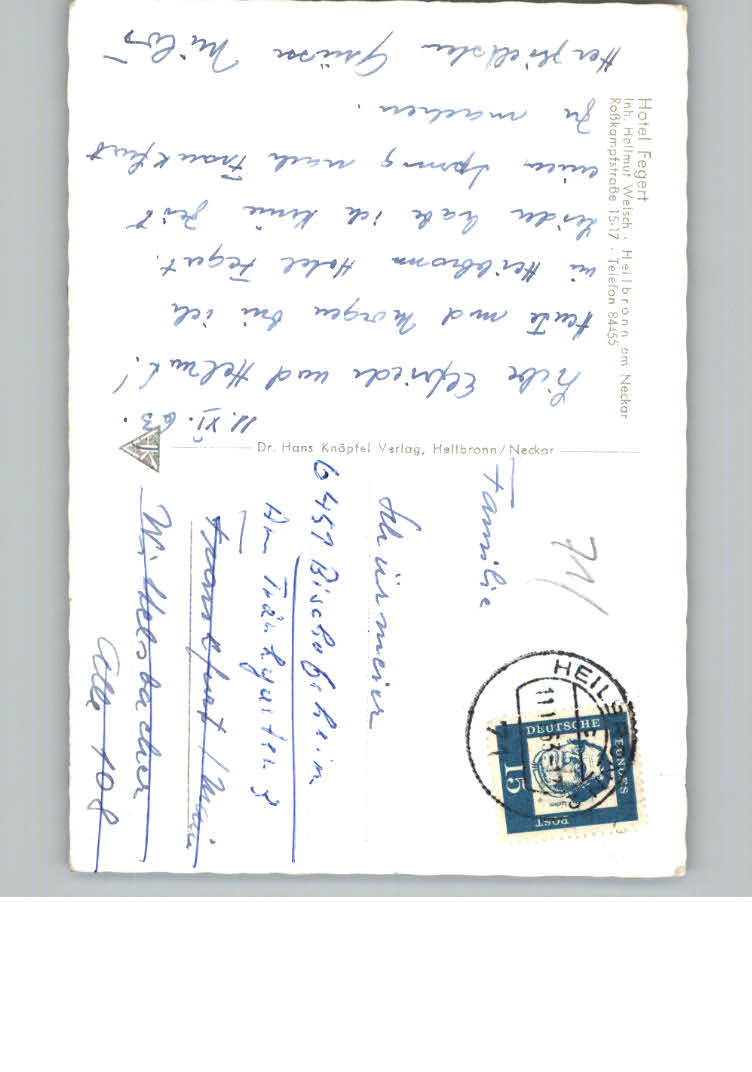 Hotel Fegert
Inh. Hellmut Welsch · Heilbronn am Neckar
Roßkampfstraße 15-17 · Telefon 84455
11. XI. 63.
Liebe Elfriede und Helmut!
Heute und Morgen bin ich
in Heilbronn Hotel Fegert.
Leider habe ich keine Zeit
einen Sprung nach Frankfurt
zu machen.
Herzlichsten Grüsse
Dr. Hans Knöpfel Verlag, Heilbronn/Neckar
71/
HEILBRONN
11.11.63
71
DEUTSCHE
BUNDES
POST
15
Familie
Schürmeier
6451 Bischofsheim
Am Tränkgarten 3
Frankfurt/Main
Wittelsbacher
Allee 108